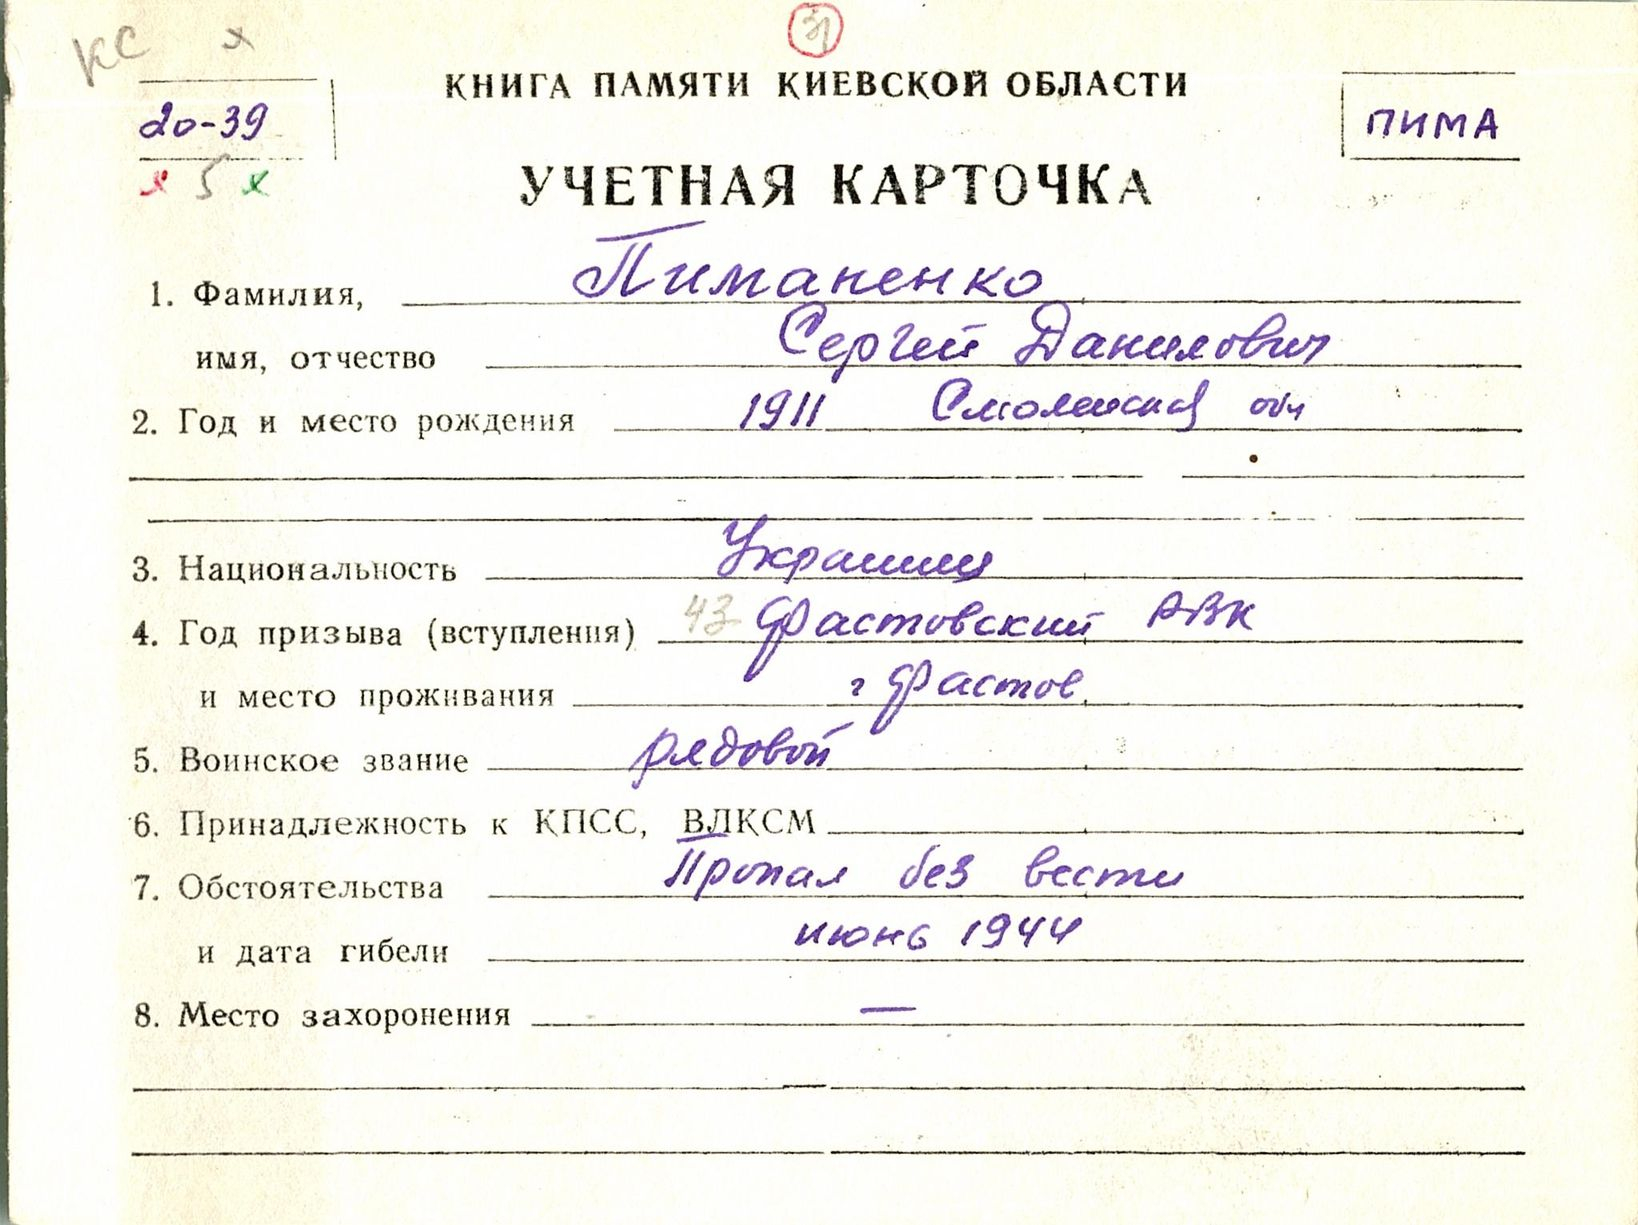 КС х
31
КНИГА ПАМЯТИ КИЕВСКОЙ ОБЛАСТИ
20-39
ПИМА
х 5 х
УЧЕТНАЯ КАРТОЧКА
1. Фамилия, Пиманенко
имя, отчество Сергей Данилович
2. Год и место рождения 1911 Смоленская обл
3. Национальность Украинец
4. Год призыва (вступления) 43 Фастовский РВК
и место проживания г Фастов
5. Воинское звание рядовой
6. Принадлежность к КПСС, ВЛКСМ
7. Обстоятельства Пропал без вести
и дата гибели июнь 1944
8. Место захоронения —